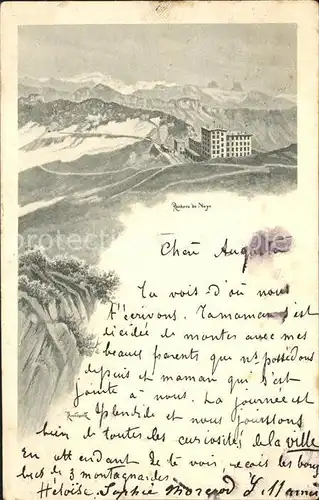 Rochers de Naye
Cher Augusta
Tu vois d'où nous
t'écrivons. Ta maman s'est
décidée de monter avec mes
beaux parents que ns possédons
depuis et maman qui s'est
jointe à nous. La journée est
splendide et nous jouissons
bien de toutes les curiosités de la ville
En attendant de te voir reçois les bons
de 3 montagnardes
Héloïse, Sophie